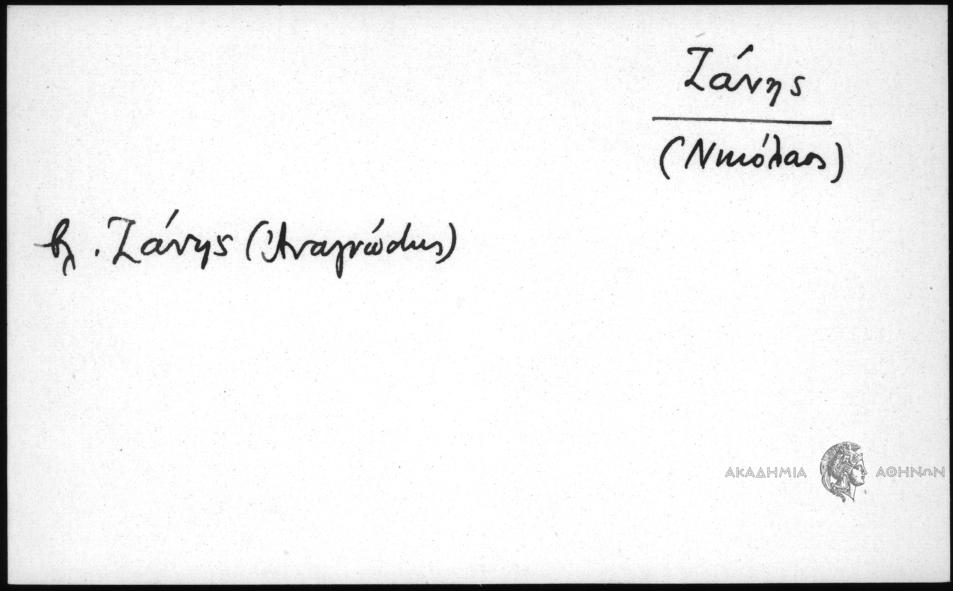 Ζάνης
(Νικόλαος)
βλ. Ζάνης (Ἀναγνώστης)
ΑΚΑΔΗΜΙΑ ΑΘΗΝΩΝ